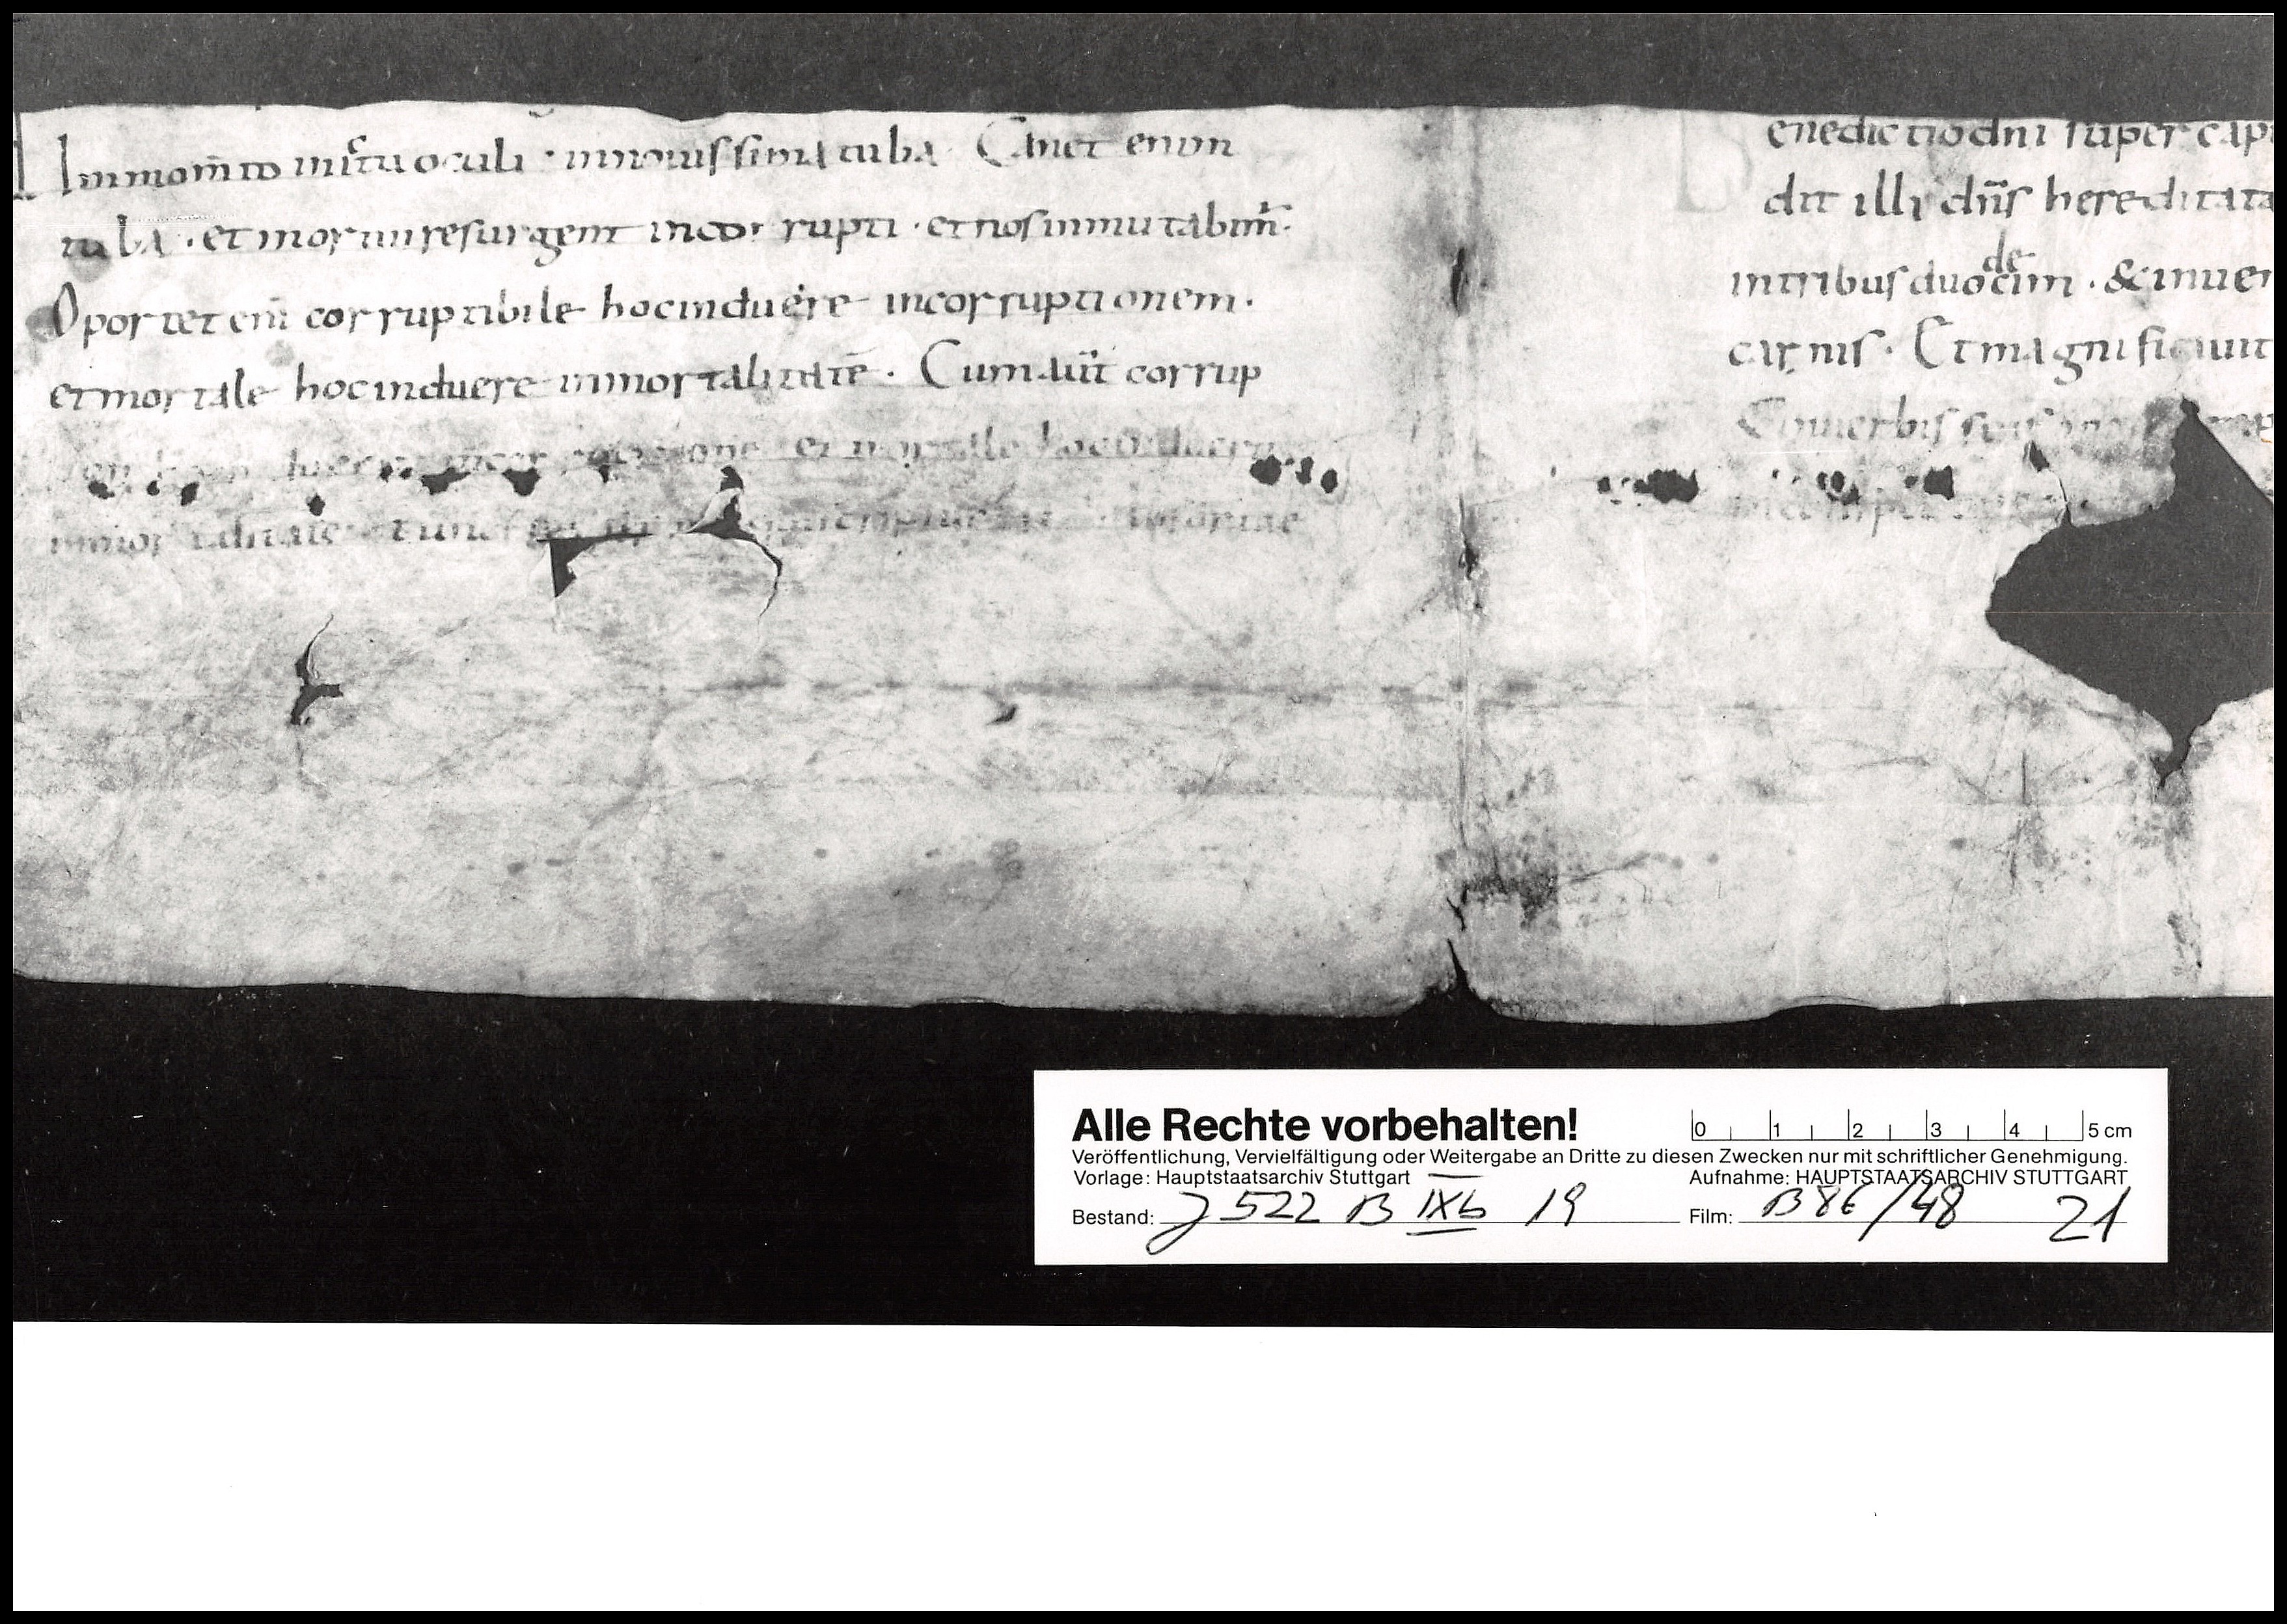 Inmom̄to inictu oculi · innouissima tuba · Canet enim
tuba · et mortui resurgent incor rupti · et nos inmutabim̄·
Oportet eni̅ corruptibile hoc induere incorruptionem ·
et mortale hoc induere inmortalitatē · Cum aut̄ corrup
et mortale hoc induerit
inmortalitate tunc
enedictio dni super cap
dit illi dn̄s hereditate
in tribus duodecim · & inuen
carnis · Et magnificauit
Et in uerbis suis
Alle Rechte vorbehalten!
0 1 2 3 4 5 cm
Veröffentlichung, Vervielfältigung oder Weitergabe an Dritte zu diesen Zwecken nur mit schriftlicher Genehmigung.
Vorlage: Hauptstaatsarchiv Stuttgart Aufnahme: HAUPTSTAATSARCHIV STUTTGART
Bestand: J 522 B IXb 19 Film: B 86/48 21